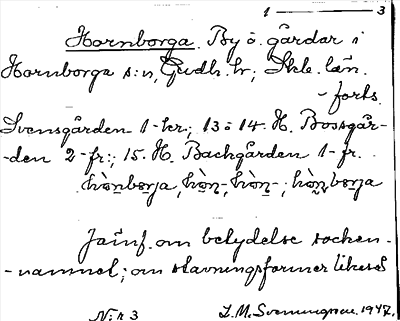 1 — 3
Hornborga. By o. gårdar i
Hornborga s:n, Gudh. hr; Skb. län.
- forts.
Svensgården 1-kr; 13 o 14. H. Bossgår-
-den 2-fr; 15. H. Backgården 1-fr.
Jämf. om betydelse socken-
-namnet; om stavningsformer likaså
N:r 3 L. M. Svenungsson. 1947.